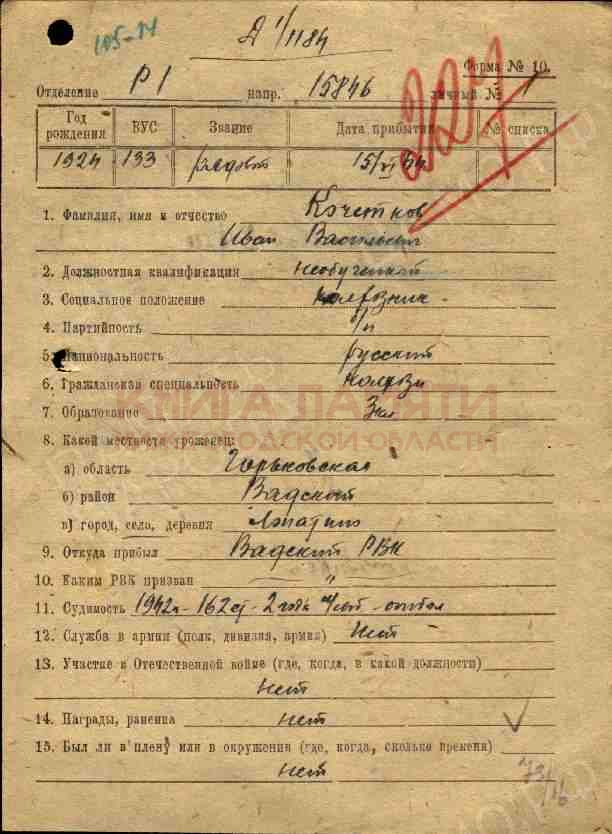 105-14
Д 1/1184
Форма № 10.
Отделение Р1 напр. 15846 личный №
227
Год рождения ВУС Звание Дата прибытия № списка
1924 133 рядовой 15/VI 44
1. Фамилия, имя и отчество Кочетков
Иван Васильевич
2. Должностная квалификация необученный
3. Социальное положение колхозник
4. Партийность б/п
5. Национальность русский
6. Гражданская специальность
КНИГА ПАМЯТИ
7. Образование 3 кл
НИЖЕГОРОДСКОЙ ОБЛАСТИ
8. Какой местности уроженец:
а) область Горьковская
б) район Вадский
в) город, село, деревня Лопатино
9. Откуда прибыл Вадский РВК
10. Каким РВК призван — " —
11. Судимость 1942г - 162 ст - 2 года
12. Служба в армии (полк, дивизия, армия) Нет
13. Участие в Отечественной войне (где, когда, в какой должности)
нет
14. Награды, ранения нет
15. Был ли в плену или в окружении (где, когда, сколько времени)
нет
73/16